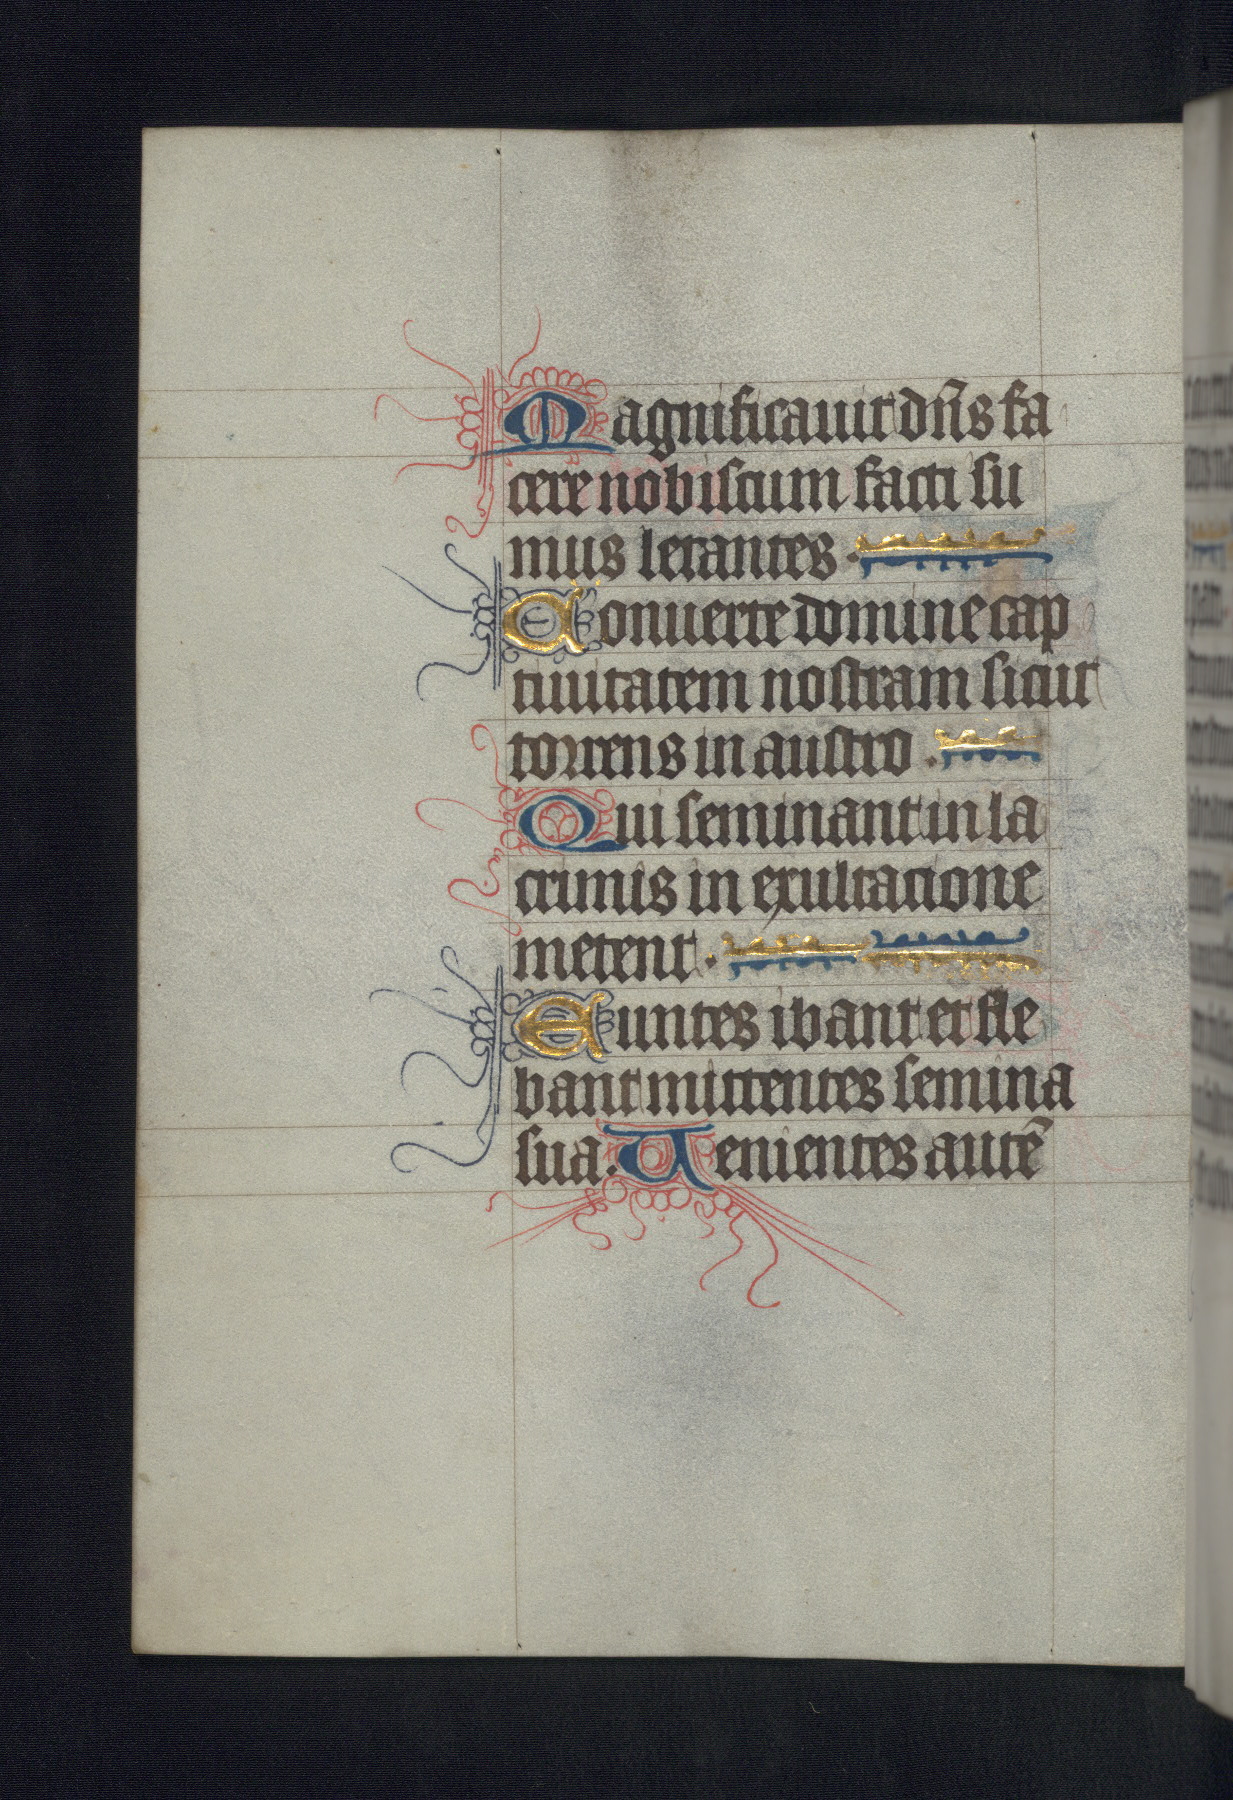 Magnificauit dn̄s fa
cere nobiscum facti su
mus letantes .
Conuerte domine cap
tiuitatem nostram sicut
torrens in austro .
Qui seminant in la
crimis in exultatione
metent .
Euntes ibant et fle
bant mittentes semina
sua. Uenientes autē